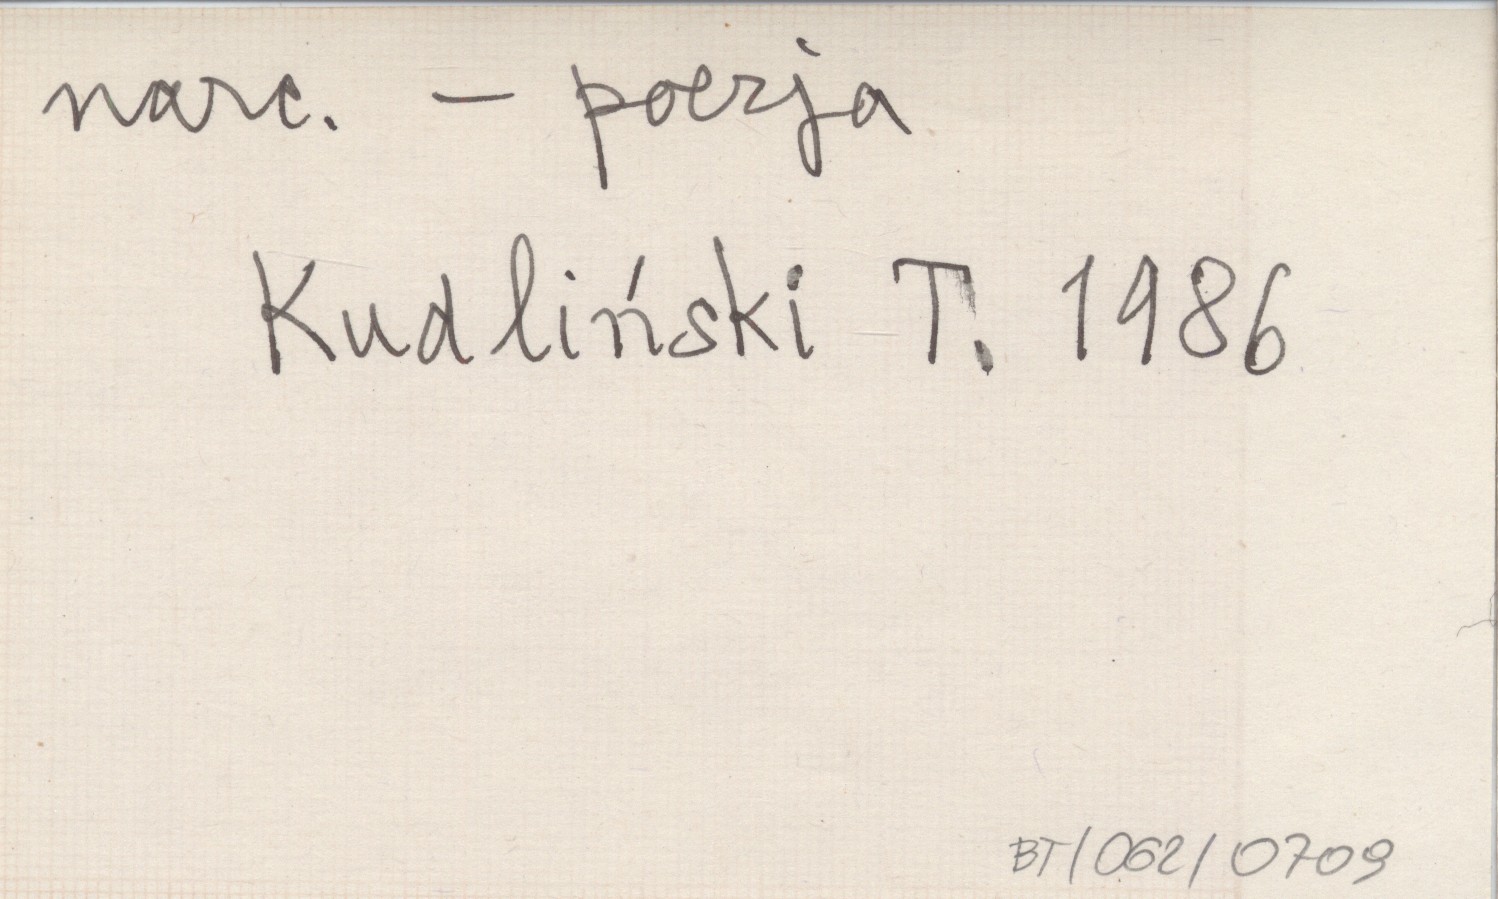 narc. – poezja
Kudliński T. 1986
BT/062/0709